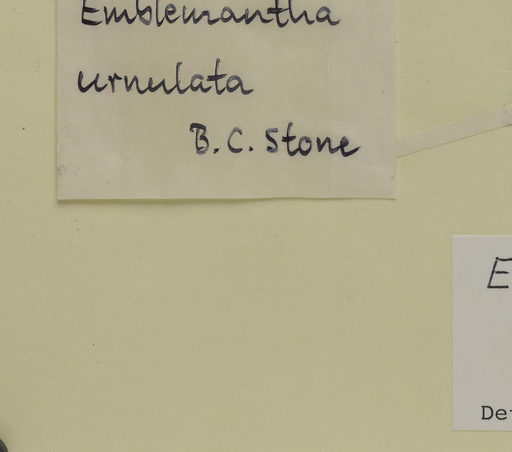 Emblemantha
urnulata
B.C. Stone
E
Det